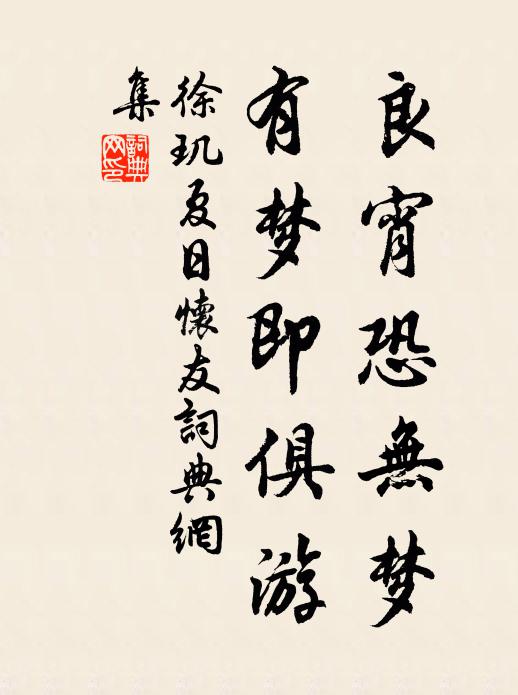 良宵恐無梦
有梦即俱游
徐玑夏日懷友詞典網
集
詞典
网印